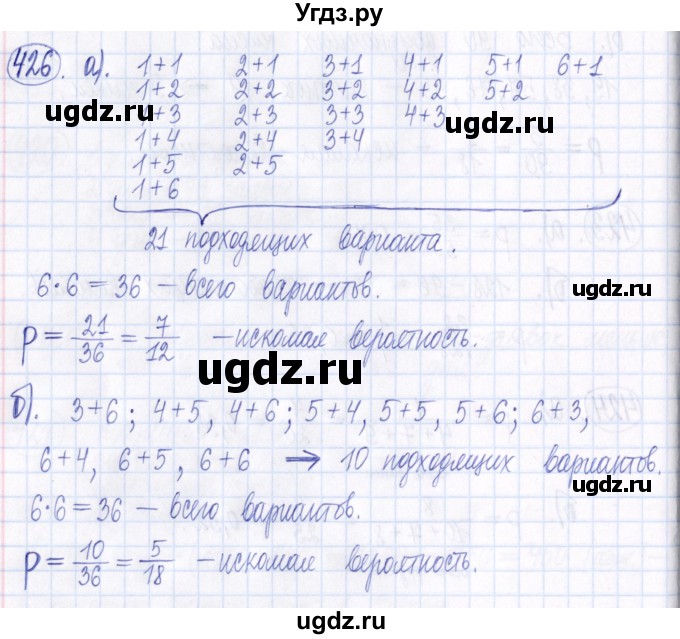 Угдз.ру
426. а). 1+1 2+1 3+1 4+1 5+1 6+1
1+2 2+2 3+2 4+2 5+2
ugdz.ru
1+3 2+3 3+3 4+3
ugdz.ru
1+4 2+4 3+4
1+5 2+5
1+6
21 подходящих варианта.
6·6=36 – всего вариантов.
ugdz.ru
P = 21/36 = 7/12 – искомая вероятность.
ugdz.ru
б). 3+6; 4+5, 4+6; 5+4, 5+5, 5+6; 6+3,
6+4, 6+5, 6+6 ⇒ 10 подходящих вариантов.
ugdz.ru
6·6=36 – всего вариантов.
P = 10/36 = 5/18 – искомая вероятность.
ugdz.ru
ugdz.ru